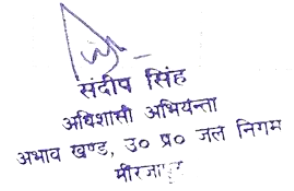 संदीप सिंह
अधिशासी अभियन्ता
अभाव खण्ड, उ० प्र० जल निगम